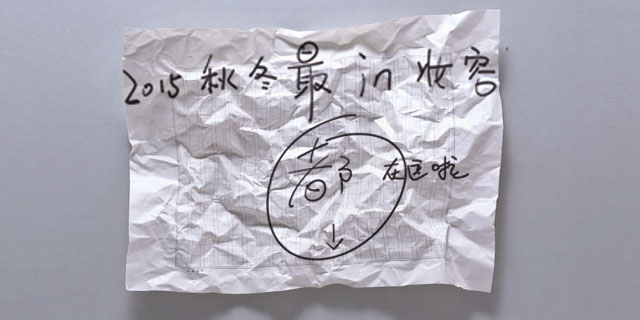 2015秋冬最in妆容
都在这啦
↓